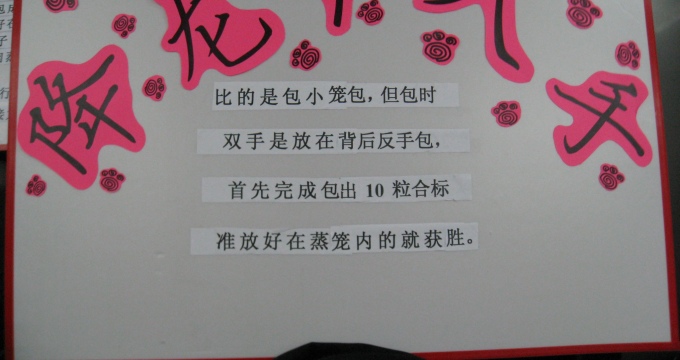 龙
手
比的是包小笼包，但包时
双手是放在背后反手包，
首先完成包出 10 粒合标
准放好在蒸笼内的就获胜。